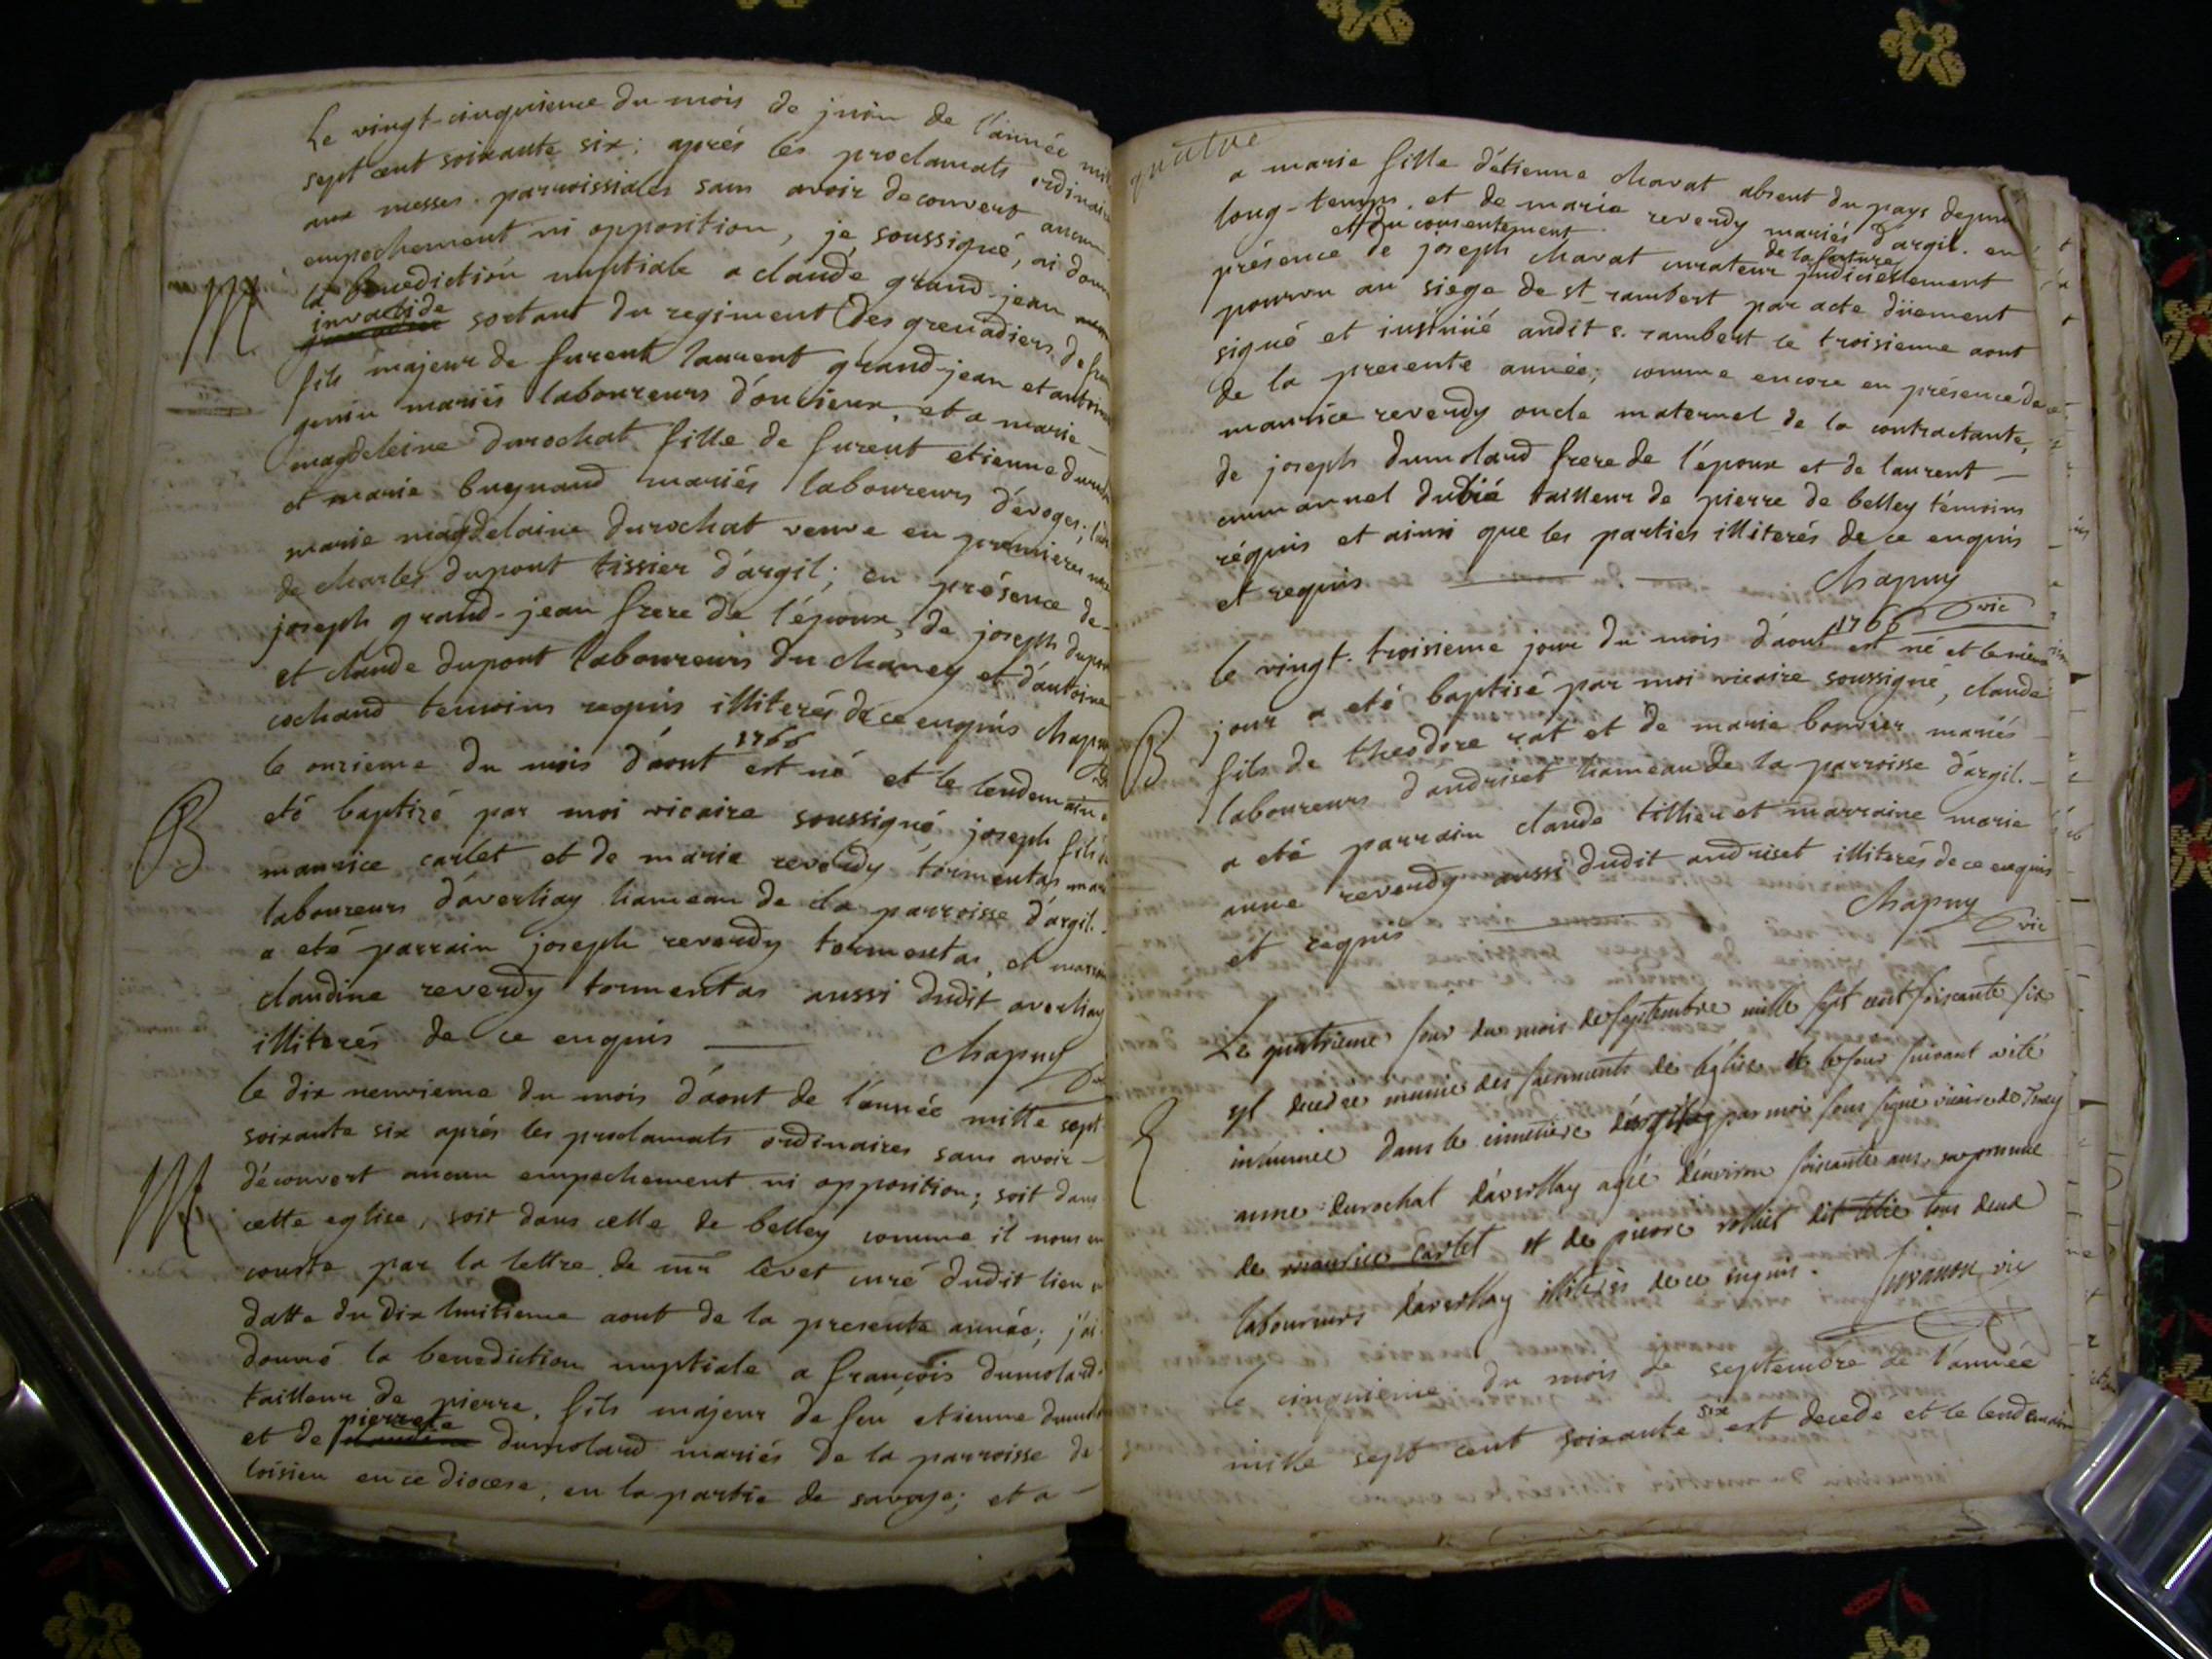 Le vingt-cinquieme du mois de juin de l'année mil
sept cent soixante six; aprés les proclamats ordinair
aux messes parroissiales sans avoir decouvert aucun
empechement ni opposition, je soussigné, ai donn
M
la benediction nuptiale a claude grand-jean
invalide
sortant du regiment des grenadiers de fran
fils majeur de furent laurent grand-jean et antoin
genin mariés laboureurs d'oncieux, et a marie -
magdeleine durochat fille de furent etienne duroch
et marie bugnand mariés laboureurs d'évoges; l'
marie magdelaine durochat veuve en premieres
de charles dupont tissier d'argil; en présence de -
joseph grand-jean frere de l'époux, de joseph dupon
et claude dupont laboureurs du chaney et d'antoine
cochand temoins requis illiterés de ce enquis chapu
1766
B
le onzieme du mois d'aout est né et le lendemain
eté baptizé par moi vicaire soussigné, joseph fils
maurice carlet et de marie reverdy tormentas mar
laboureurs d'averliay hameau de la parroisse d'argil.
a eté parrain joseph reverdy tormentas, et marra
claudine reverdy tormentas aussi dudit averliay
illiterés de ce enquis — chapuy
le dix neuvieme du mois d'aout de l'année mille sept
soixante six aprés les proclamats ordinaires sans avoir -
M
découvert aucun empechement ni opposition; soit dans
cette eglise, soit dans celle de belley comme il nous
conste par la lettre de mr levet curé dudit lieu
datte du dix huitieme aout de la presente année; j'ai
donné la benediction nuptiale a françois dumolard
tailleur de pierre, fils majeur de feu etienne dumol
pierrete
et de dumolard mariés de la parroisse de
loisieu en ce diocese, en la partie de savoye; et a -
quatre
a marie fille d'étienne charat absent du pays depuis
long-temps, et de marie reverdy mariés d'argil. en
et du consentement
présence de joseph charat curateur judiciellement
de la future
pourvu au siege de st rambert par acte düement
signé et insinüé audit s. rambert le troisieme aout
de la presente année; comme encore en présence de
maurice reverdy oncle maternel de la contractante,
de joseph dumolard frere de l'époux et de laurent -
emmanuel dubié tailleur de pierre de belley témoins
réquis et ainsi que les parties illiterés de ce enquis
et requis — chapuy
vic
1766
le vingt-troisieme jour du mois d'aout est né et le meme
B
jour a eté baptisé par moi vicaire soussigné, claude
fils de theodore rat et de marie bouvier mariés
laboureurs d'andriset hameau de la parroisse d'argil. -
a eté parrain claude tillier et marraine marie
anne reverdy aussi dudit andriset illiterés de ce enquis
et requis — chapuy
vic
Le quatrieme jour du mois de septembre mille sept cent soixante six
est decedee munie des sacrements de l'église et le jour suivant a été
inhumée dans le cimetiere d'argil par moi sous signé vicaire de Tenay
anne durochat d'averlliay agée d'environ soixante ans, en presence
de maurice carlet et de pierre rolliet dit tous deux
laboureurs d'averlliay illitérés de ce enquis. vic
le cinquieme du mois de septembre de l'année
six
mille sept cent soixante est decedé et le lendemain